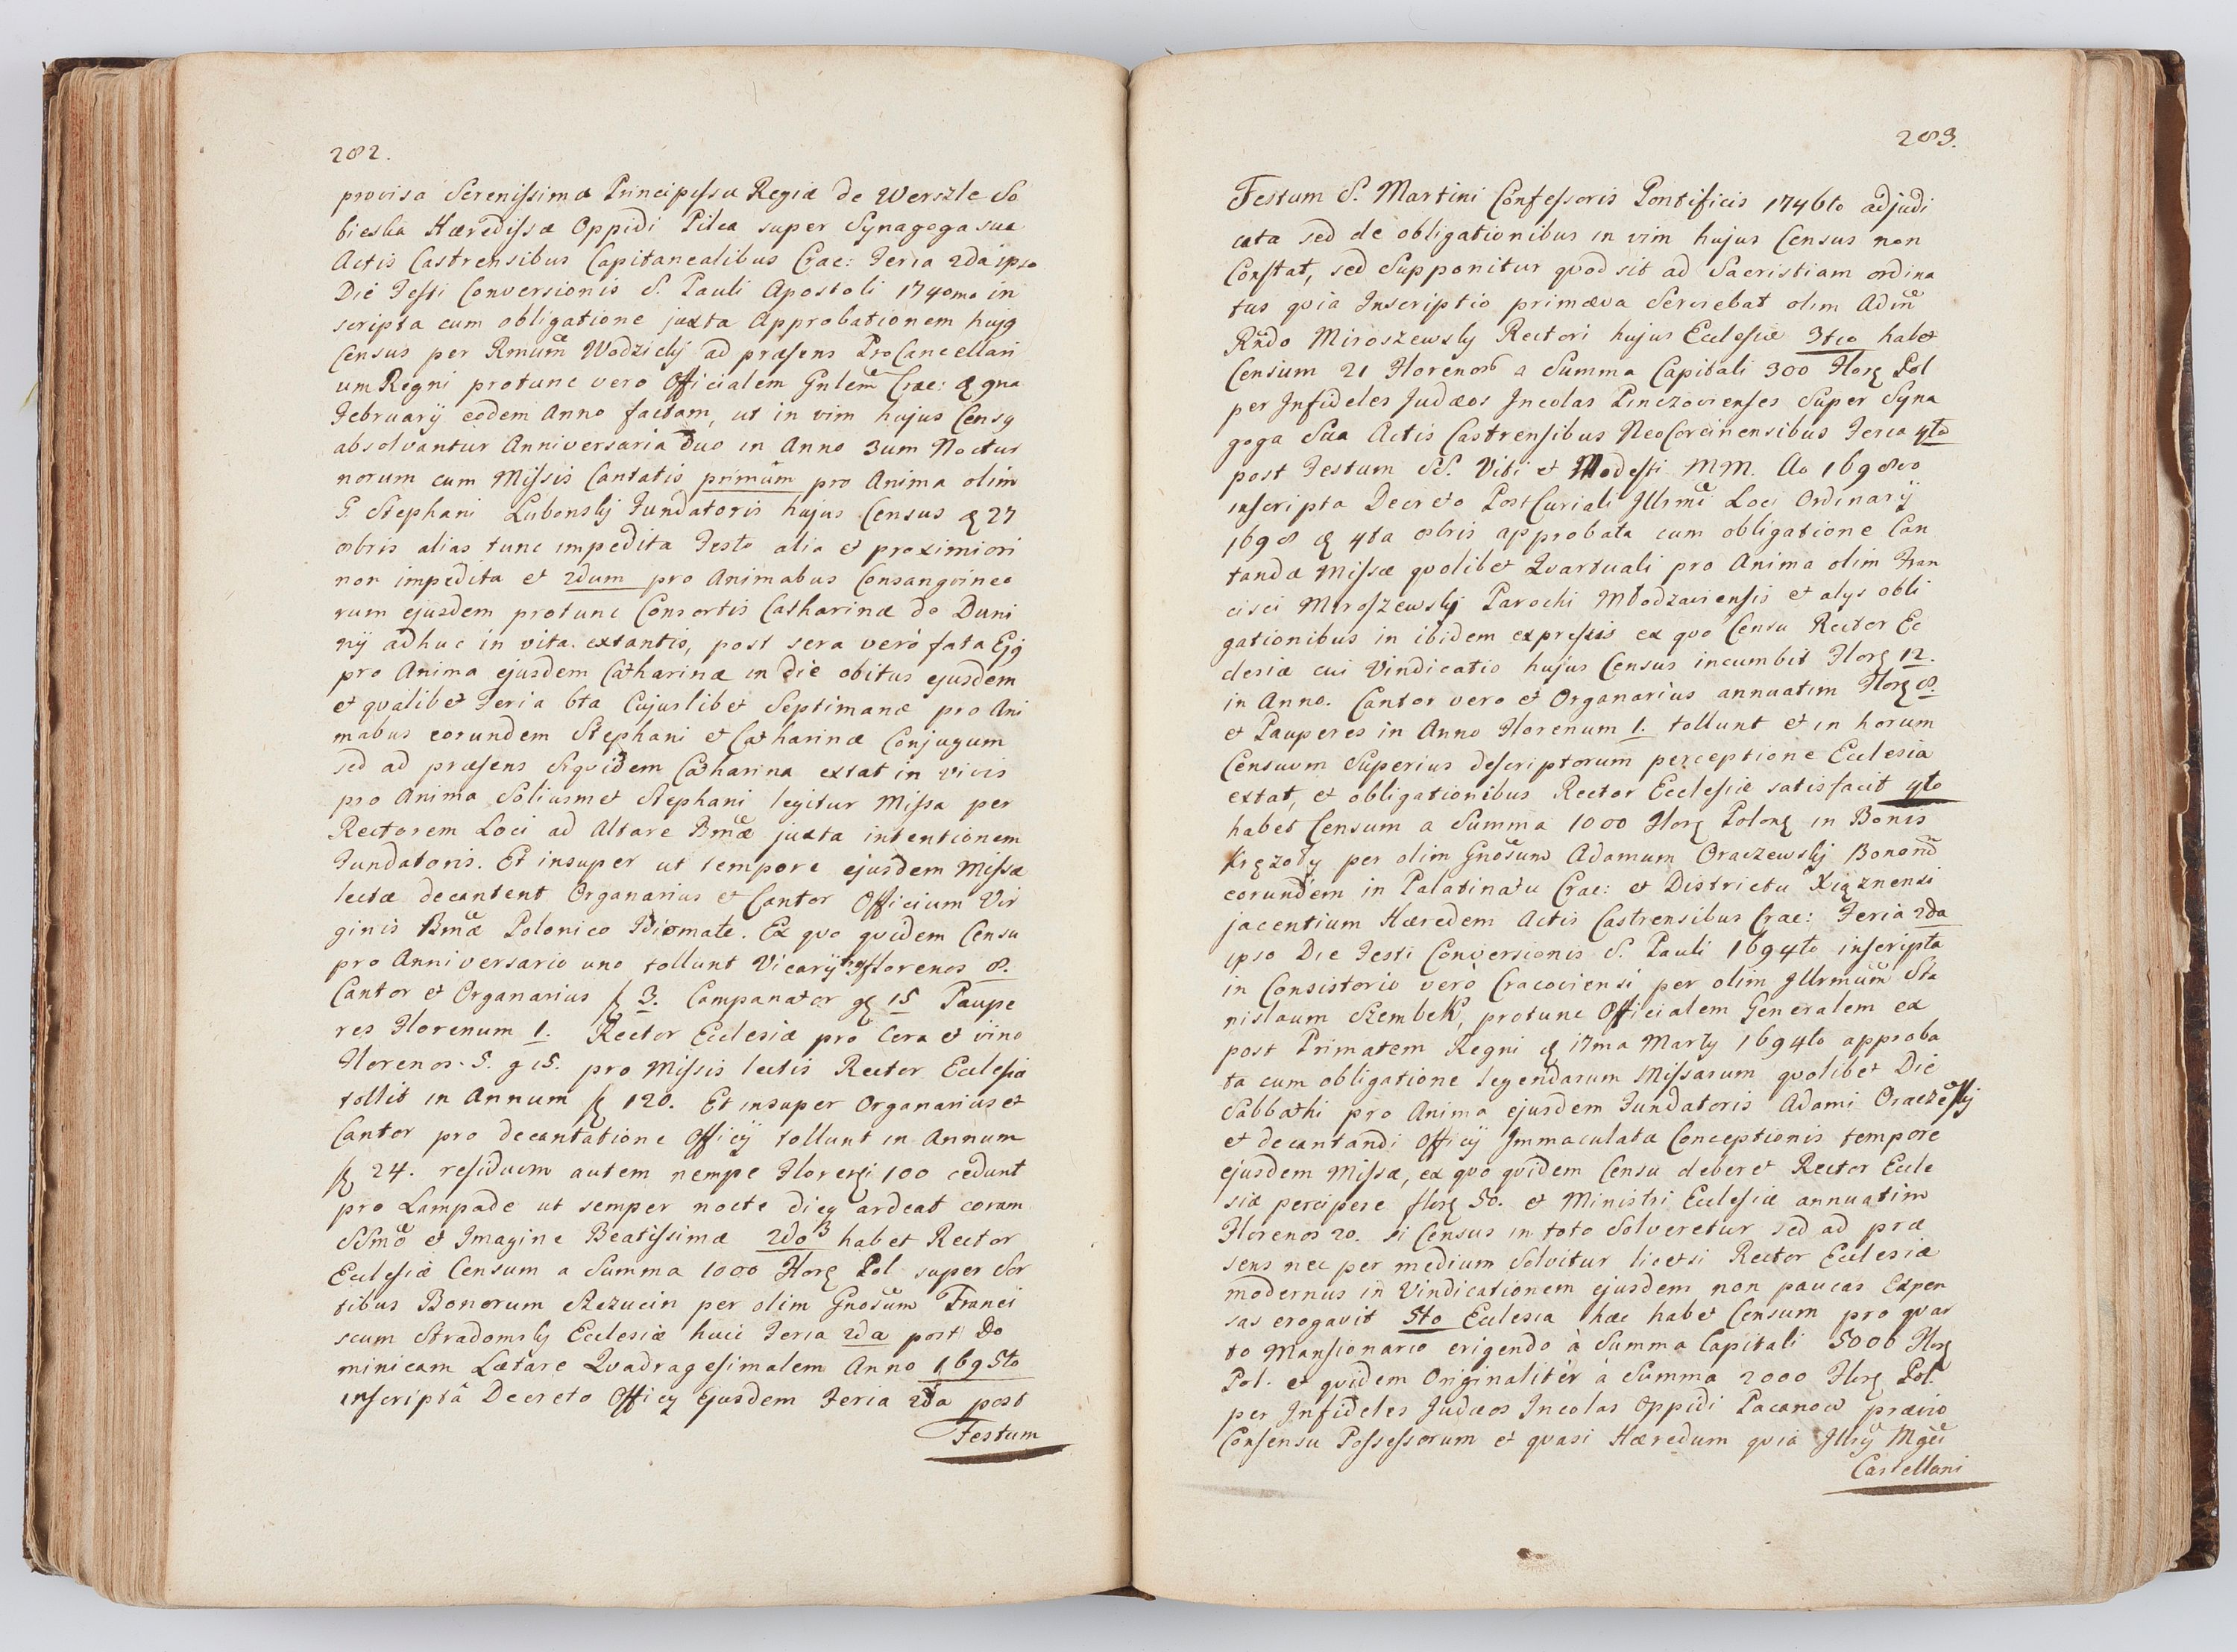 282.
provisa Serenissima Principissæ Regiæ de Werszle So
bieska Hæredissæ Oppidi Pilca super Synagoga sua
Actis Castrensibus Capitanealibus Crac: Feria 2da ipso
Die Festi Conversionis S. Pauli Apostoli 1740mo in
scripta cum obligatione juxta Approbationem hujg
Census per Rmum Wodzickij ad præsens ProCancellari
um Regni protunc vero Officialem Gnlem Crac: 9na
February eodem Anno factam, ut in vim hujus Censg
absolvantur Anniversaria duo in Anno 3um Noctur
norum cum Missis Cantatis primum pro Anima olim
G. Stephani Lubonskij Fundatoris hujus Census 27
8bris alias tunc impedita Festo alia et proximiori
non impedita et 2dum pro Animabus Consangvineo
rum ejusdem protunc Consortis Catharinæ de Duni
nij adhuc in vita extantis, post sera vero fata Ejg
pro Anima ejusdem Catharinæ in die obitus ejusdem
et qvalibet Feria 6ta Cujuslibet Septimanæ pro Ani
mabus eorundem Stephani et Catharinæ Conjugum
sed ad præsens Siqvidem Catharina extat in vivis
pro Anima Soliusmet Stephani legitur Missa per
Rectorem Loci ad Altare Bmæ juxta intentionem
Fundatoris. Et insuper ut tempore ejusdem Missæ
lectæ decantent Organarius et Cantor Officium Vir
ginis Bmæ Polonico Idiomate. Ex qvo qvidem Censu
pro Anniversario uno tollunt Vicarij florenos 8.
Cantor et Organarius f 3. Campanator g 15 Paupe
res Florenum 1. Rector Ecclesiæ pro Cera et vino
Florenos 5. g 15. pro Missis lectis Rector Ecclesiæ
tollit in Annum f 120. Et insuper Organarius et
Cantor pro decantatione Officij tollunt in Annum
f 24. residuum autem nempe Floreni 100 cedunt
pro Lampade ut semper nocte dieq ardeat coram
SSmo et Imagine Beatissimæ 2do habet Rector
Ecclesiæ Censum a Summa 1000 Flor Pol super Sor
tibus Bonorum Szczucin per olim Gnosum Franci
scum Stradomskij Ecclesiæ huic Feria 2da post Do
minicam Lætare Qvadragesimalem Anno 1695to
inscripta Decreto Officij Ejusdem Feria 2da post
Festum
283.
Festum S. Martini Confessoris Pontificis 1746to adjudi
cata sed de obligationibus in vim hujus Census non
Constat, sed Supponitur qvod sit ad Sacristiam ordina
tus qvia Inscriptio primæva Serviebat olim Adm
Rndo Miroszewskij Rectori hujus Ecclesiæ 3tio habet
Censum 21 Florenos a Summa Capitali 300 Flor Pol
per Infideles Judæos Incolas Pinczovienses Super Syna
goga Sua Actis Castrensibus NeoCorcinensibus Feria 4ta
post Festum SS. Viti et Modesti MM. Ao 1698vo
inscripta Decreto PostCuriali Illrmi Loci Ordinarij
1698 4ta 8bris approbata cum obligatione Can
tandæ Missæ qvolibet Qvartuali pro Anima olim Fran
cisci Miroszewskij Parochi Młodzaviensis et alys obli
gationibus in ibidem expressis ex qvo Censu Rector Ec
clesiæ cui Vindicatio hujus Census incumbit Flor 12.
in Anno. Cantor vero et Organarius annuatim Flor 8.
et Pauperes in Anno Florenum 1. tollunt et in horum
Censuum Superius descriptorum perceptione Ecclesia
extat, et obligationibus Rector Ecclesiæ satisfacit 4to
habet Censum a Summa 1000 Flor Polon in Bonis
per olim Gnosum Adamum Oraczewskij Bonor
eorundem in Palatinatu Crac: et Districtu Xiąznensi
jacentium Hæredem Actis Castrensibus Crac: Feria 2da
ipso Die Festi Conversionis S. Pauli 1694to inscripta
in Consistorio vero Cracoviensi per olim Illrmum Sta
nislaum Szembek, protunc Officialem Generalem ex
post Primatem Regni 17ma Marty 1694to approba
ta cum obligatione legendarum Missarum qvolibet Die
Sabbathi pro Anima ejusdem Fundatoris Adami Oraczeskij
et decantandi Officij Immaculatæ Conceptionis tempore
ejusdem Missæ, ex qvo qvidem Censu deberet Rector Eccle
siæ percipere flor 50. et Ministri Ecclesiæ annuatim
Florenos 20. si Census in toto Solveretur sed ad præ
sens nec per medium Solvitur licetsi Rector Ecclesiæ
modernus in Vindicationem ejusdem non paucas Expen
sas erogavit 5to Ecclesia hæc habet Censum pro qvar
to Mansionario erigendo à Summa Capitali 5000 Flor
Pol. et qvidem Originalitèr à Summa 2000 Flor Pol.
per Infideles Judæos Incolas Oppidi Pacanow prævio
Consensu Possessorum et qvasi Hæredum qvia Illrij Mgci
Castellani